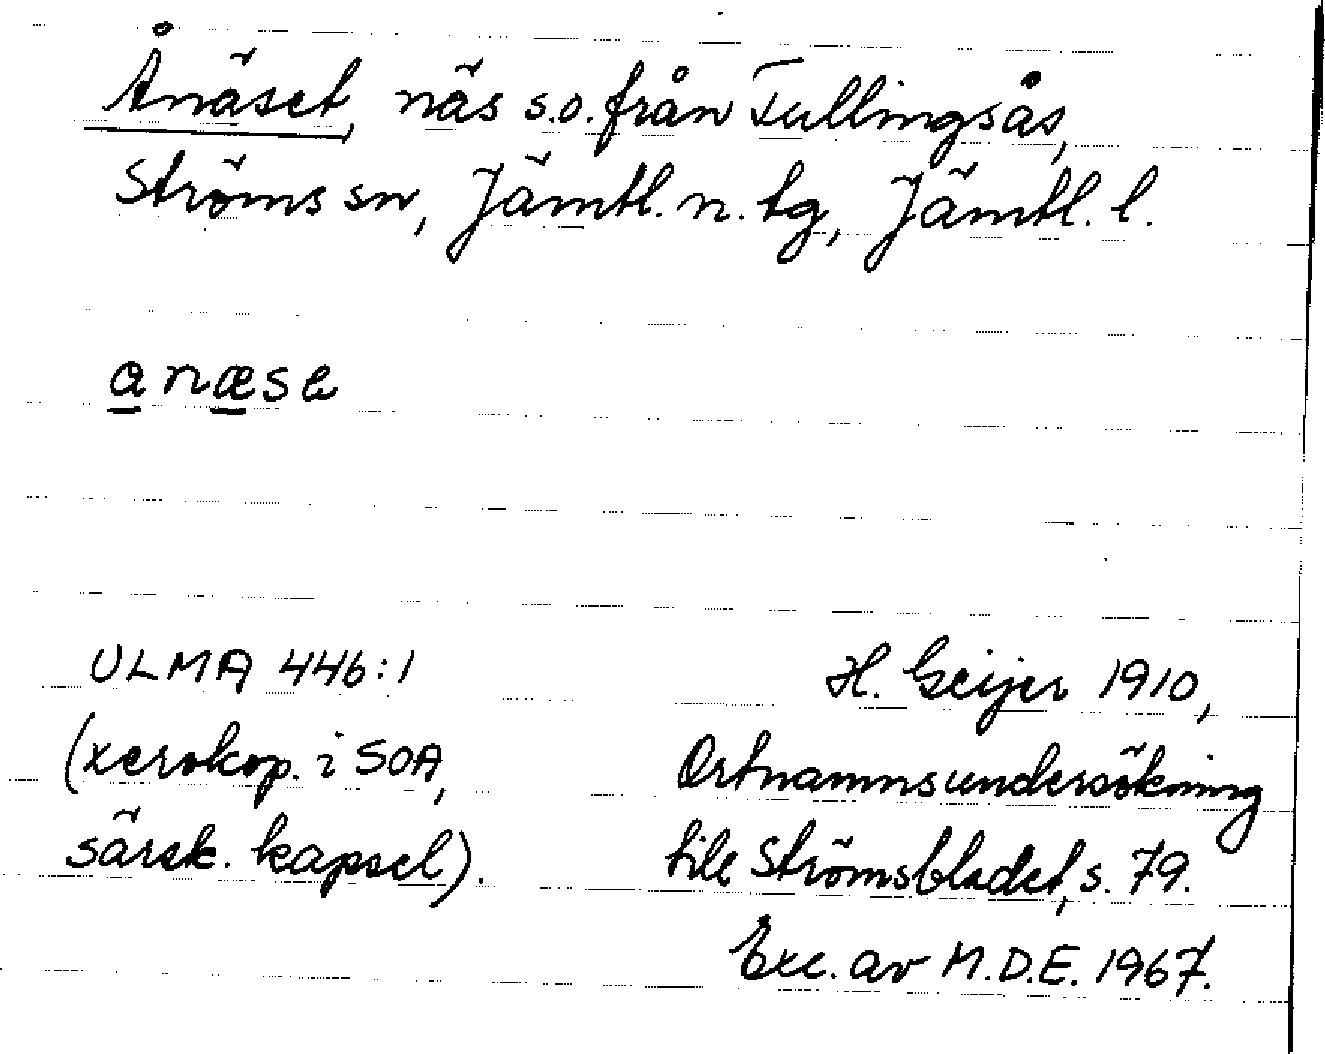 Ånäset, näs s.o. från Tullingsås,
Ströms sn, Jämtl. n. tg, Jämtl. l.
a næse
ULMA 446:1
(xerokop. i SOA,
särsk. kapsel).
H. Geijer 1910,
Ortnamnsundersökning
till Strömsbladet, s. 79.
Exc. av M.D.E. 1967.